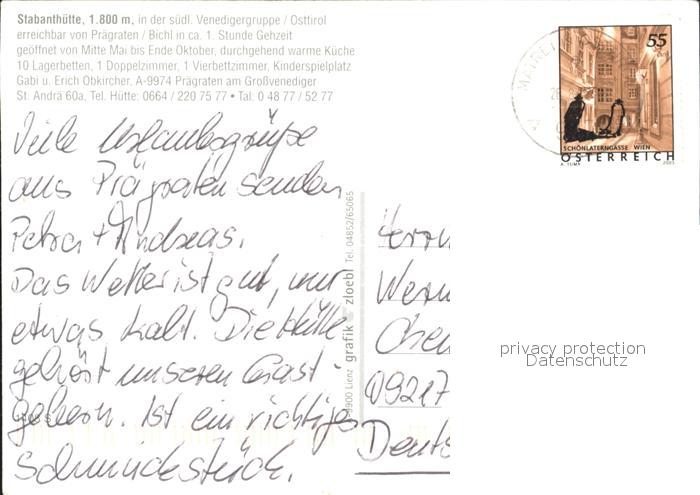 Stabanthütte, 1.800 m, in der südl. Venedigergruppe / Osttirol
erreichbar von Prägraten / Bichl in ca. 1. Stunde Gehzeit
geöffnet von Mitte Mai bis Ende Oktober, durchgehend warme Küche
10 Lagerbetten, 1 Doppelzimmer, 1 Vierbettzimmer, Kinderspielplatz
Gabi u. Erich Obkircher, A-9974 Prägraten am Großvenediger
St. Andrä 60a, Tel. Hütte: 0664 / 220 75 77 • Tal: 0 48 77 / 52 77
Viele Urlaubsgrüße
aus Prägraten senden
Petra + Andreas.
Das Wetter ist gut, nur
etwas kalt. Die Hütte
gehört unseren Gast-
gebern. Ist ein richtiges
Schmuckstück.
9900 Lienz grafik zloebl Tel. 04852/65065
55
SCHÖNLATERNGASSE WIEN
ÖSTERREICH
2005
Herrn
Wern
Chem
09217
Deuts
privacy protection
Datenschutz